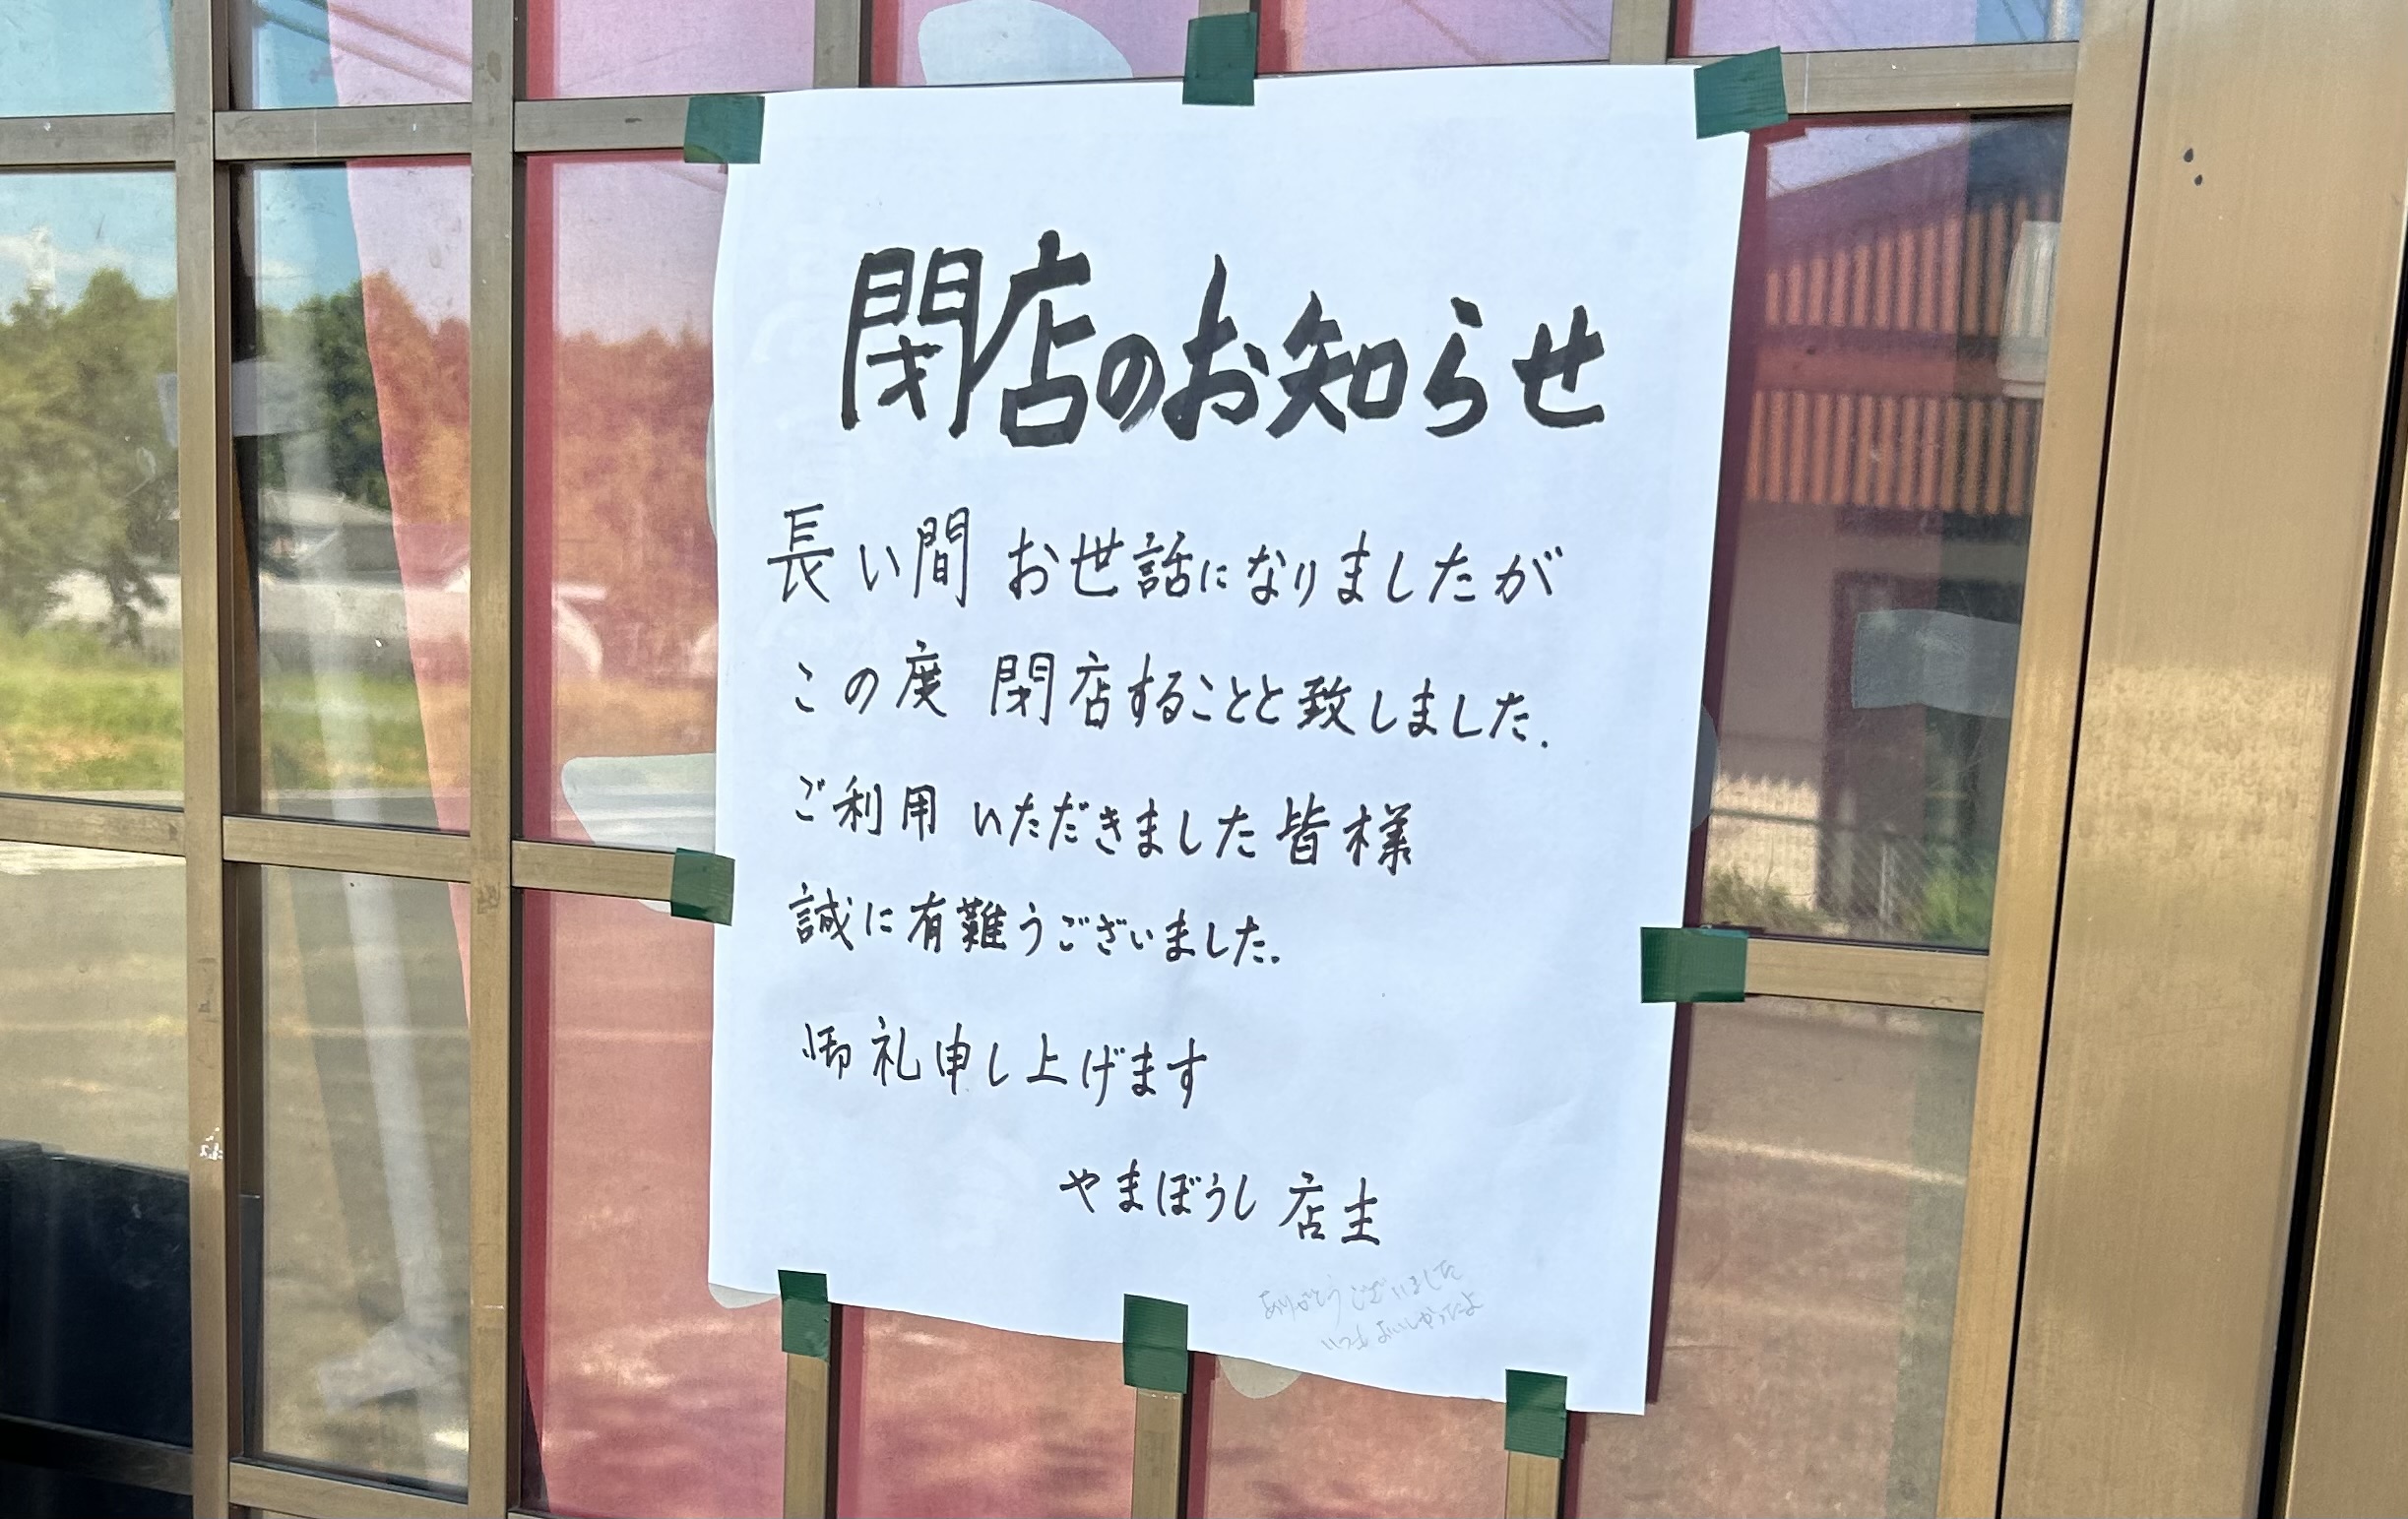 閉店のお知らせ
長い間 お世話になりましたが
この度 閉店することと致しました.
ご利用 いただきました皆様
誠に有難うございました.
御礼申し上げます
やまぼうし 店主
ありがとうございました
いつもおいしかったよ